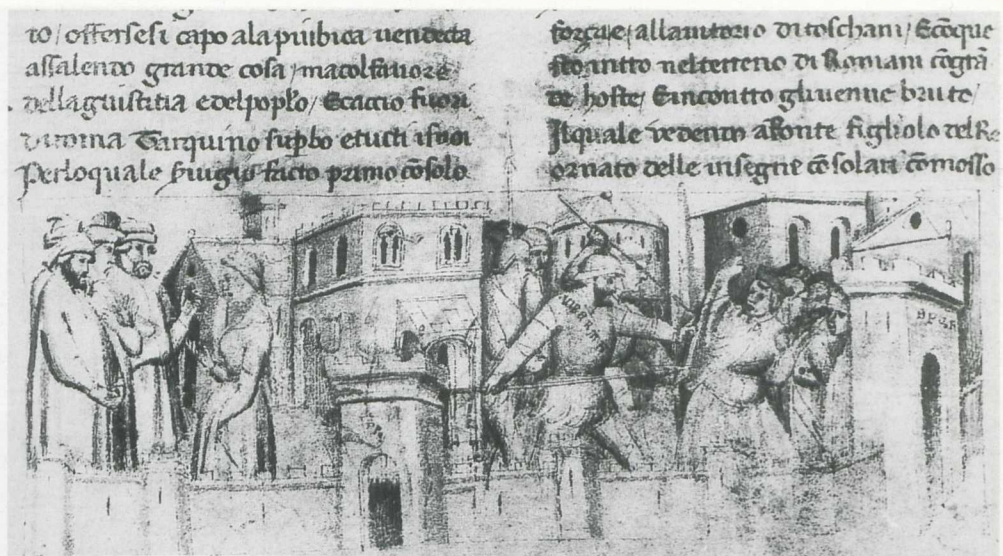 to / offersesi capo ala puibica uendecta
assalendo grande cosa / macolfauore
dellagiustitia edelpopło / Ecaccio fuori
diroma Tarquino supbo etucti isuoi
Perloquale facto primo cōsolo
forçue / allauitorio di toschani / Ecōque
sto intto nelterreno di Romani cōgrā
de hoste / Eincontro gliuenne bruto /
Ilquale vedendo aRonte figliolo delRe
ornato delle insegne cōsolari cōmosso